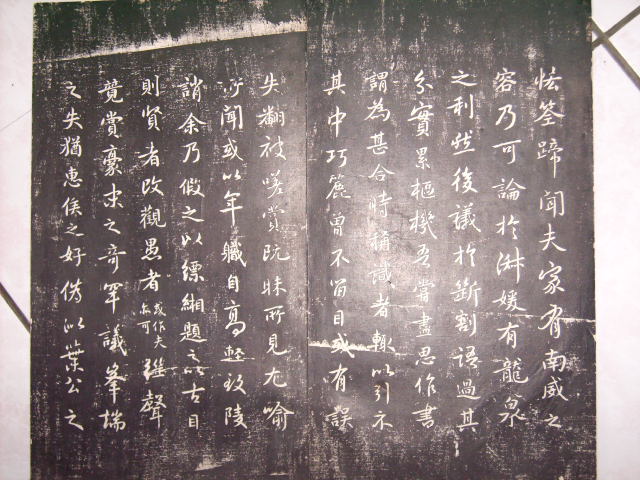 恡筌蹄聞夫家有南威之
容乃可論於淑媛有龍泉
之利然後議於斷割語過其
分實累樞機吾嘗盡思作書
謂為甚合時稱識者輙以引示
其中巧麗曾不留目或有誤
失翻被嗟賞既昧所見尤喻
所聞或以年職自高輕致陵
誚余乃假之以縹緗題之以古目
則賢者改觀愚者或作夫亦可繼聲
競賞豪末之奇罕議峯端
之失猶惠侯之好偽似葉公之